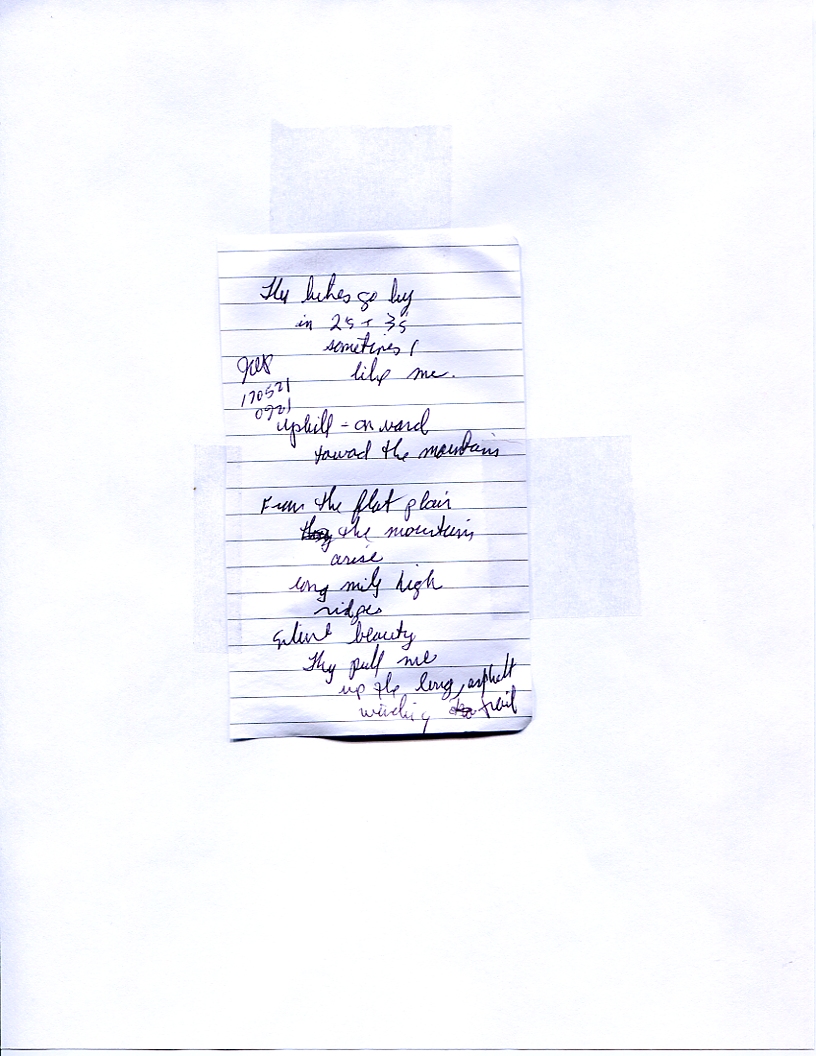 The bikes go by
in 2s + 3s
sometimes 1
like me.
170521
0921
uphill - onward
toward the mountains
From the flat plain
the mountains
arise
long mile high
ridges
Silent beauty
They pull me
up the long, asphalt
winding trail